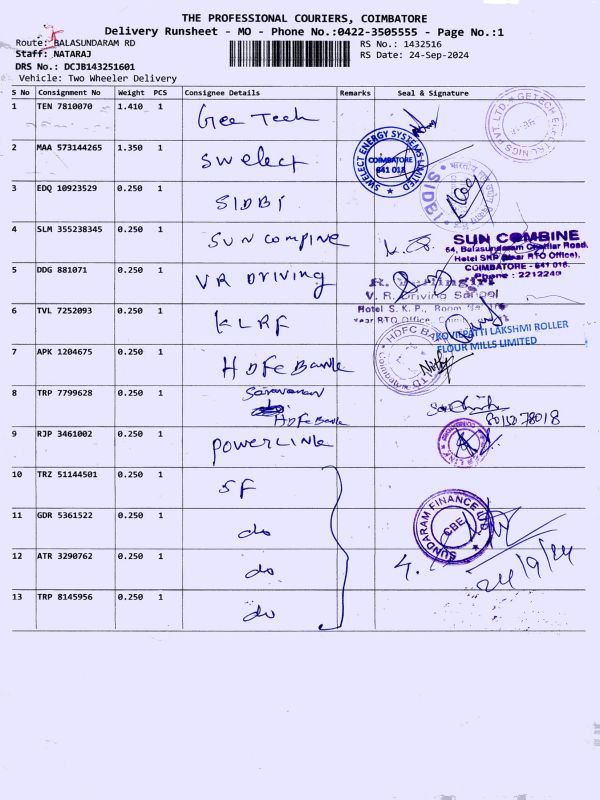 THE PROFESSIONAL COURIERS, COIMBATORE
Delivery Runsheet - MO - Phone No.:0422-3505555 - Page No.:1
Route: BALASUNDARAM RD
RS No.: 1432516
Staff: NATARAJ
RS Date: 24-Sep-2024
DRS No.: DCJB143251601
Vehicle: Two Wheeler Delivery
S No Consignment No Weight PCS Consignee Details Remarks Seal & Signature
1 TEN 7810070 1.410 1 Gee Tech
GETECH ELECTRONICS PVT. LTD.
2 MAA 573144265 1.350 1 Swelect
SWELECT ENERGY SYSTEMS LIMITED
COIMBATORE
641 018
3 EDQ 10923529 0.250 1 SIDBI
SIDBI
4 SLM 355238345 0.250 1 SUN COMPINE
SUN COMBINE
64, Balasundaram Chettiar Road,
Hotel SKP (Near RTO Office),
COIMBATORE - 641 018.
Phone : 2212240
5 DDG 881071 0.250 1 VR DRIVING
V. R. Driving School
Hotel S. K. P., Room
Near RTO Office,
6 TVL 7252093 0.250 1 KLRF
KOVILPATTI LAKSHMI ROLLER
FLOUR MILLS LIMITED
7 APK 1204675 0.250 1 HDFC Bank
HDFC BANK LTD
8 TRP 7799628 0.250 1 Saravanan
HDFC Bank
9 RJP 3461002 0.250 1 POWERLINK
10 TRZ 51144501 0.250 1 SF
11 GDR 5361522 0.250 1 do
SUNDARAM FINANCE LTD.
CBE
12 ATR 3290762 0.250 1 do
24/9/24
13 TRP 8145956 0.250 1 do